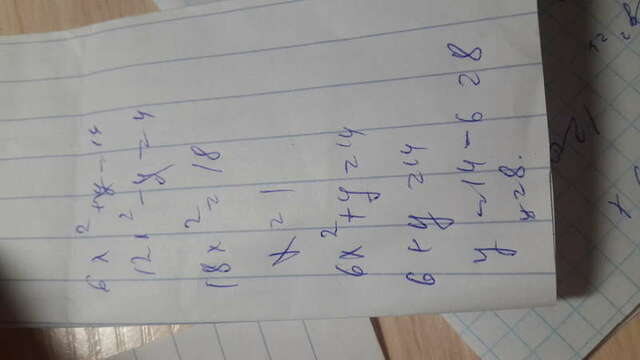 6x² + y = 14
12x² - y = 4
18x² = 18
x = 1
6x² + y = 14
6 + y = 14
y = 14 - 6 = 8
y = 8.